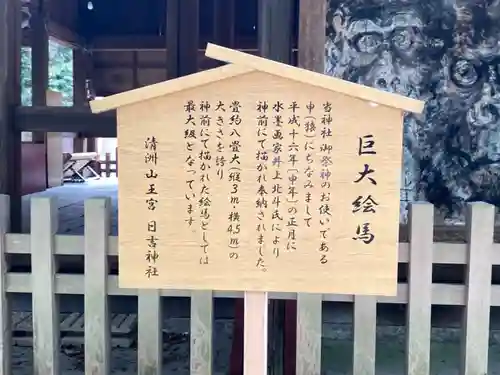 巨大絵馬
当神社御祭神のお使いである
申(猿)にちなみまして
平成十六年(申年)の正月に
水墨画家井上北斗氏により
神前にて描かれ奉納されました。
畳約八畳大(縦3m・横4.5m)の
大きさを誇り
神前にて描かれた絵馬としては
最大級となっています
清洲山王宮 日吉神社